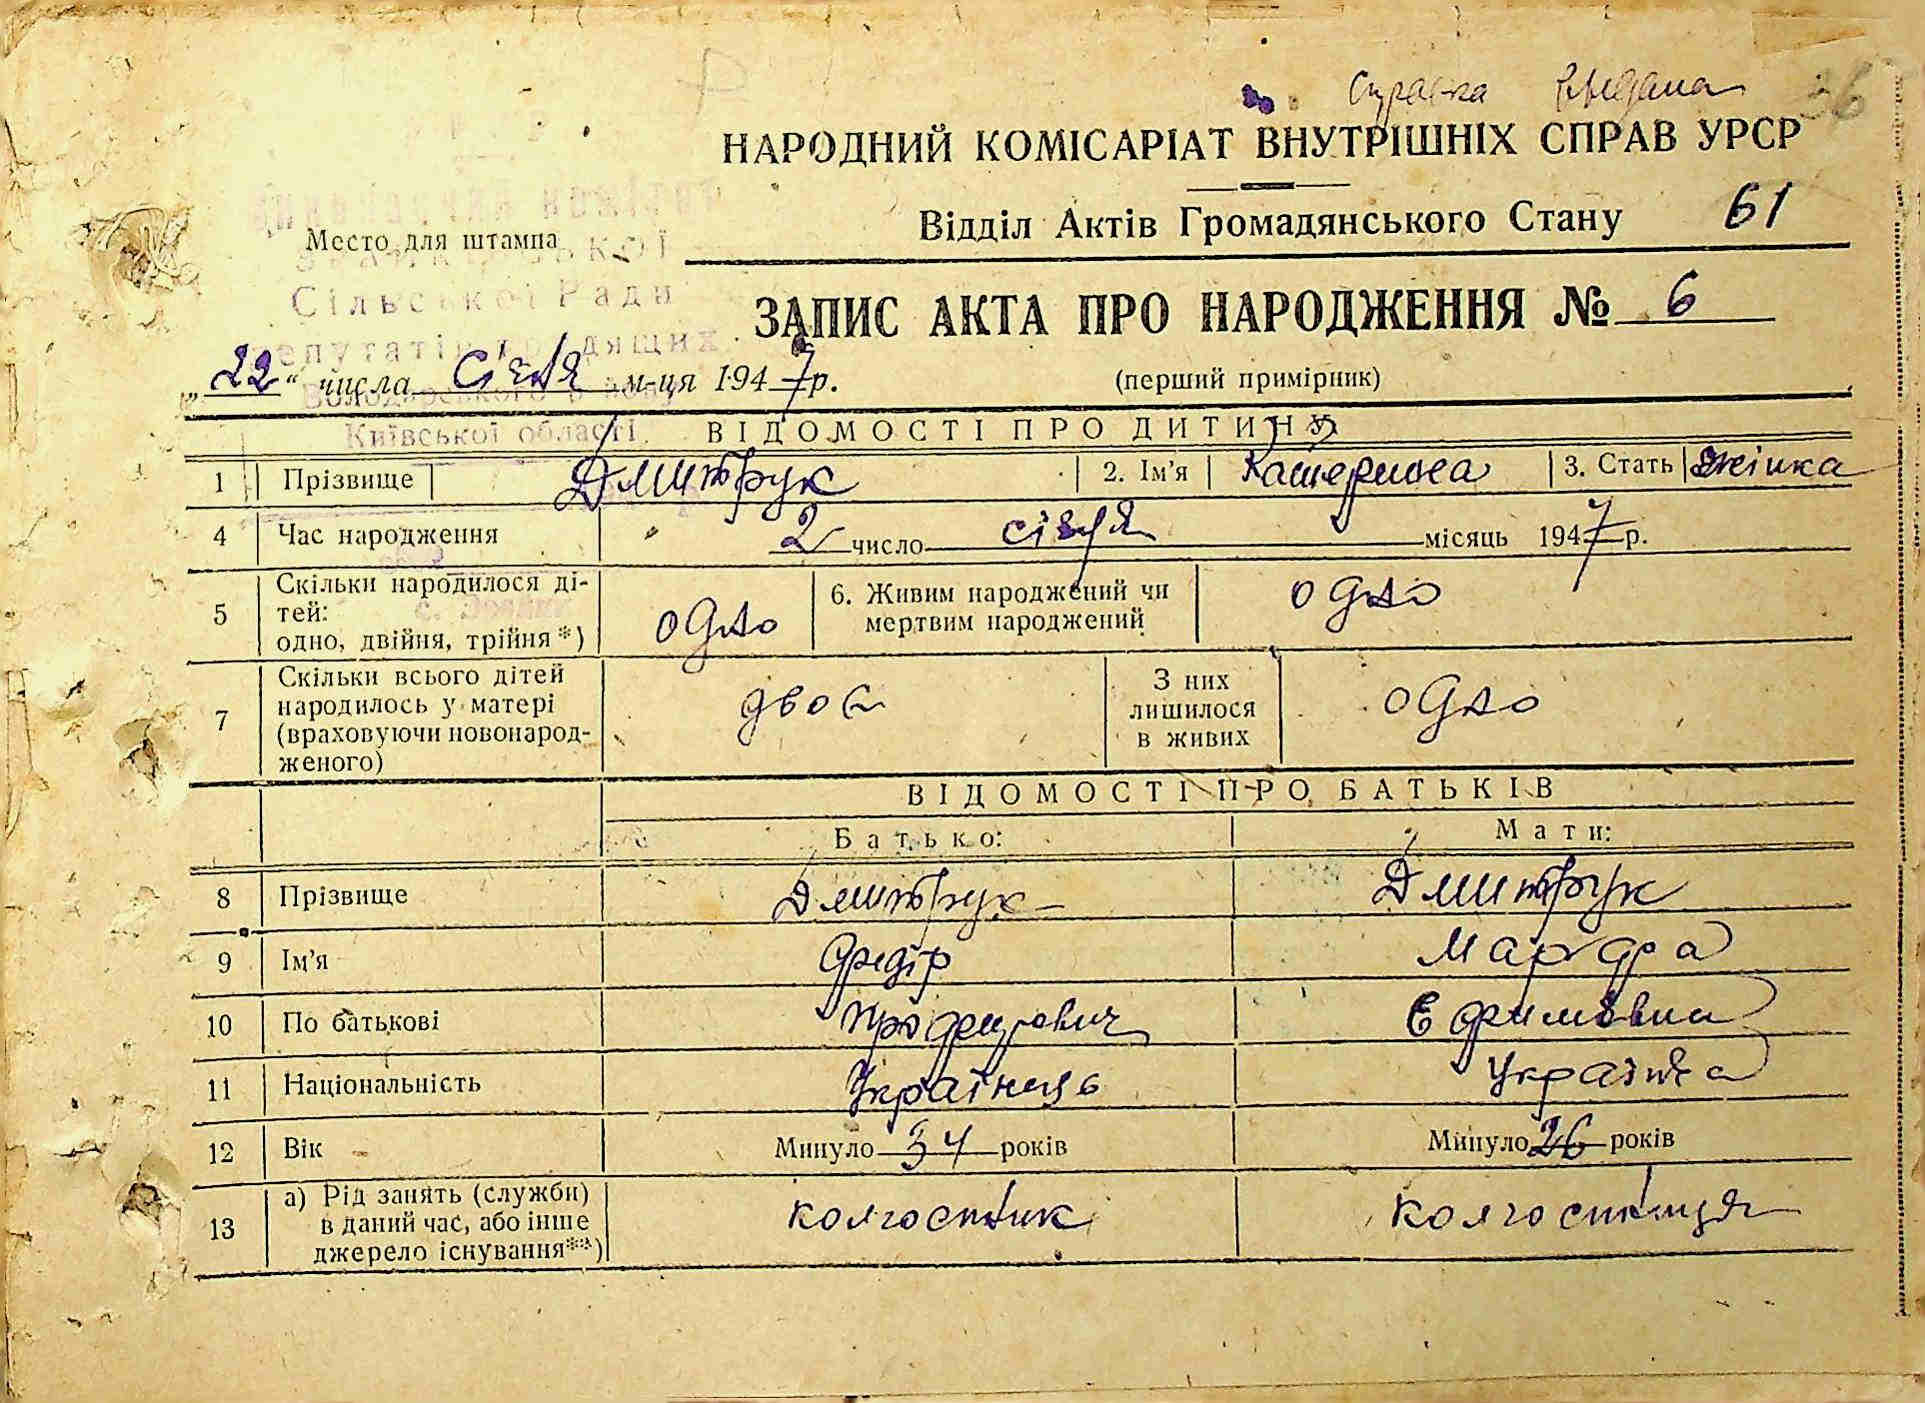 Справка видана 36
НАРОДНИЙ КОМІСАРІАТ ВНУТРІШНІХ СПРАВ УРСР
Відділ Актів Громадянського Стану 61
Место для штампа
Сільської Ради
депутатів трудящих
Володарського району
Київської області
ЗАПИС АКТА ПРО НАРОДЖЕННЯ № 6
„22“ числа Січня м-ця 1947 р. (перший примірник)
ВІДОМОСТІ ПРО ДИТИНУ
1 Прізвище Дмитрук 2. Ім'я Катерина 3. Стать жінка
4 Час народження 2 число січня місяць 1947 р.
5 Скільки народилося ді-
тей:
одно, двійня, трійня *) одно 6. Живим народжений чи
мертвим народжений одно
7 Скільки всього дітей
народилось у матері
(враховуючи новонарод-
женого) двоє З них
лишилося
в живих одно
ВІДОМОСТІ ПРО БАТЬКІВ
Батько: Мати:
8 Прізвище Дмитрук Дмитрук
9 Ім'я Федір Марфа
10 По батькові Єфимовна
11 Національність Українець Українка
12 Вік Минуло 34 років Минуло 26 років
13 а) Рід занять (служби)
в даний час, або інше
джерело існування**) колгоспник колгоспниця